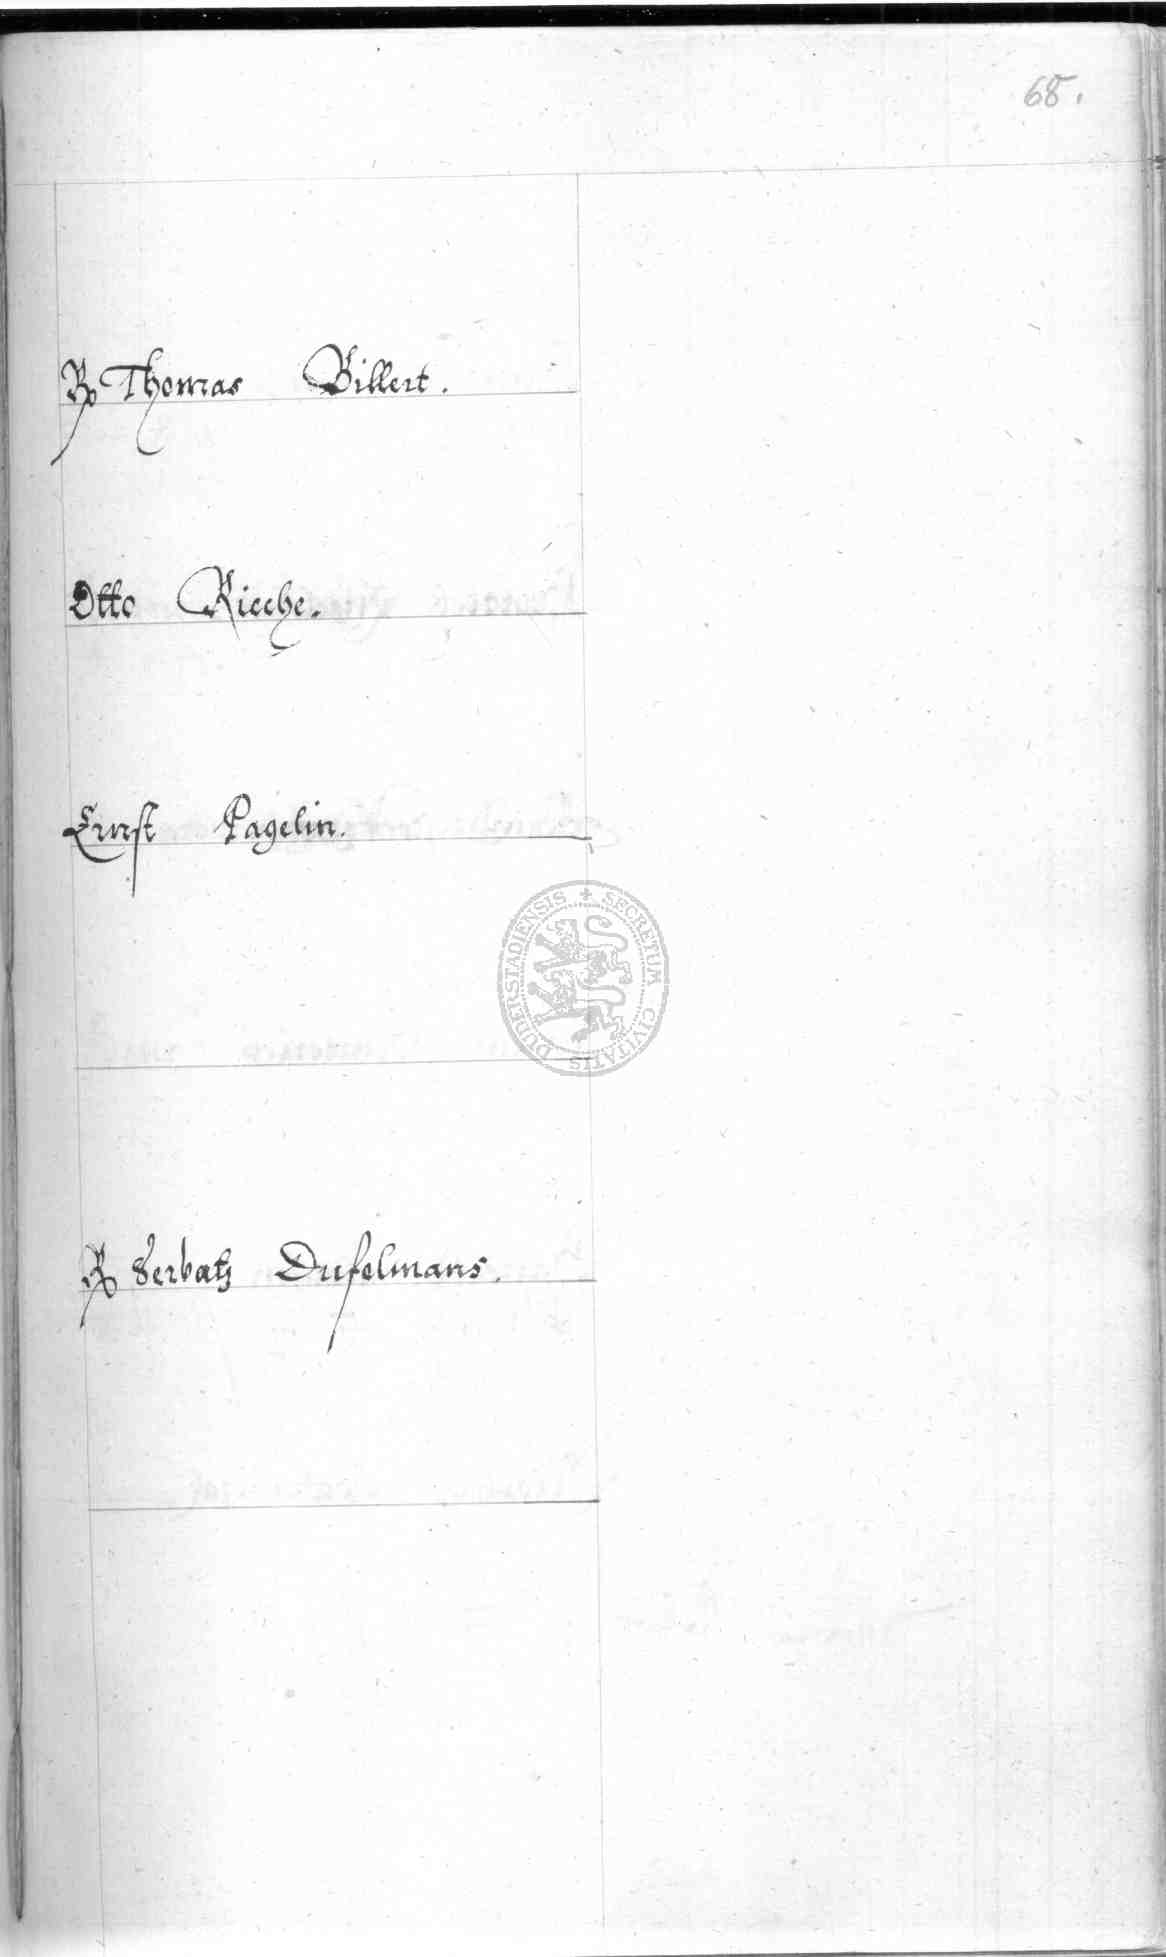 68.
Rp Thomas Billert.
Otto Riecke.
Ernst Pagelin.
SECRETUM CIVITATIS DUDERSTADIENSIS
Rp Servatz Duselmans.